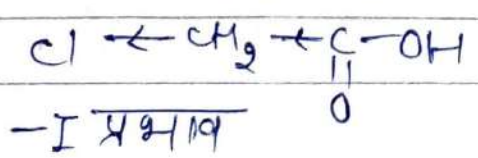 Cl ← CH₂ ← C – OH
||
O
-I प्रभाव